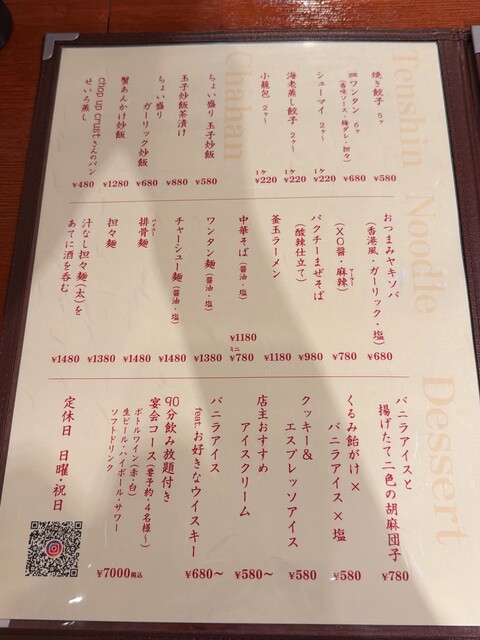 Tenshin
焼き餃子 5ヶ
¥580
ワンタン 6ヶ
(香味ソース・梅ダレ・担々)
¥680
シューマイ 2ヶ〜
1ケ
¥220
海老蒸し餃子 2ヶ〜
1ケ
¥220
小籠包 2ヶ〜
1ケ
¥220
Chahan
ちょい盛り 玉子炒飯
¥580
玉子炒飯茶漬け
¥880
ちょい盛り
ガーリック炒飯
¥680
蟹あんかけ炒飯
¥1280
chop up crustさんのパン
せいろ蒸し
¥480
Noodle
おつまみヤキソバ
(香港風・ガーリック・塩)
¥680
(XO醬・麻辣)
マーラー
¥780
パクチーまぜそば
(酸辣仕立て)
¥980
釜玉ラーメン
¥1180
中華そば(醤油・塩)
¥1180
ミニ
¥780
ワンタン麺(醤油・塩)
¥1380
チャーシュー麺(醤油・塩)
¥1480
排骨麺
パイクー
¥1480
担々麺
¥1380
汁なし担々麺(太)を
あてに酒を呑む
¥1480
Dessert
バニラアイスと
揚げたて二色の胡麻団子
¥780
くるみ飴がけ×
バニラアイス×塩
¥580
クッキー&
エスプレッソアイス
¥580
店主おすすめ
アイスクリーム
¥580〜
バニラアイス
feat.お好きなウイスキー
¥680〜
90分飲み放題付き
宴会コース(要予約・4名様〜)
ボトルワイン(赤・白)
生ビール・ハイボール・サワー
ソフトドリンク
¥7000税込
定休日 日曜・祝日